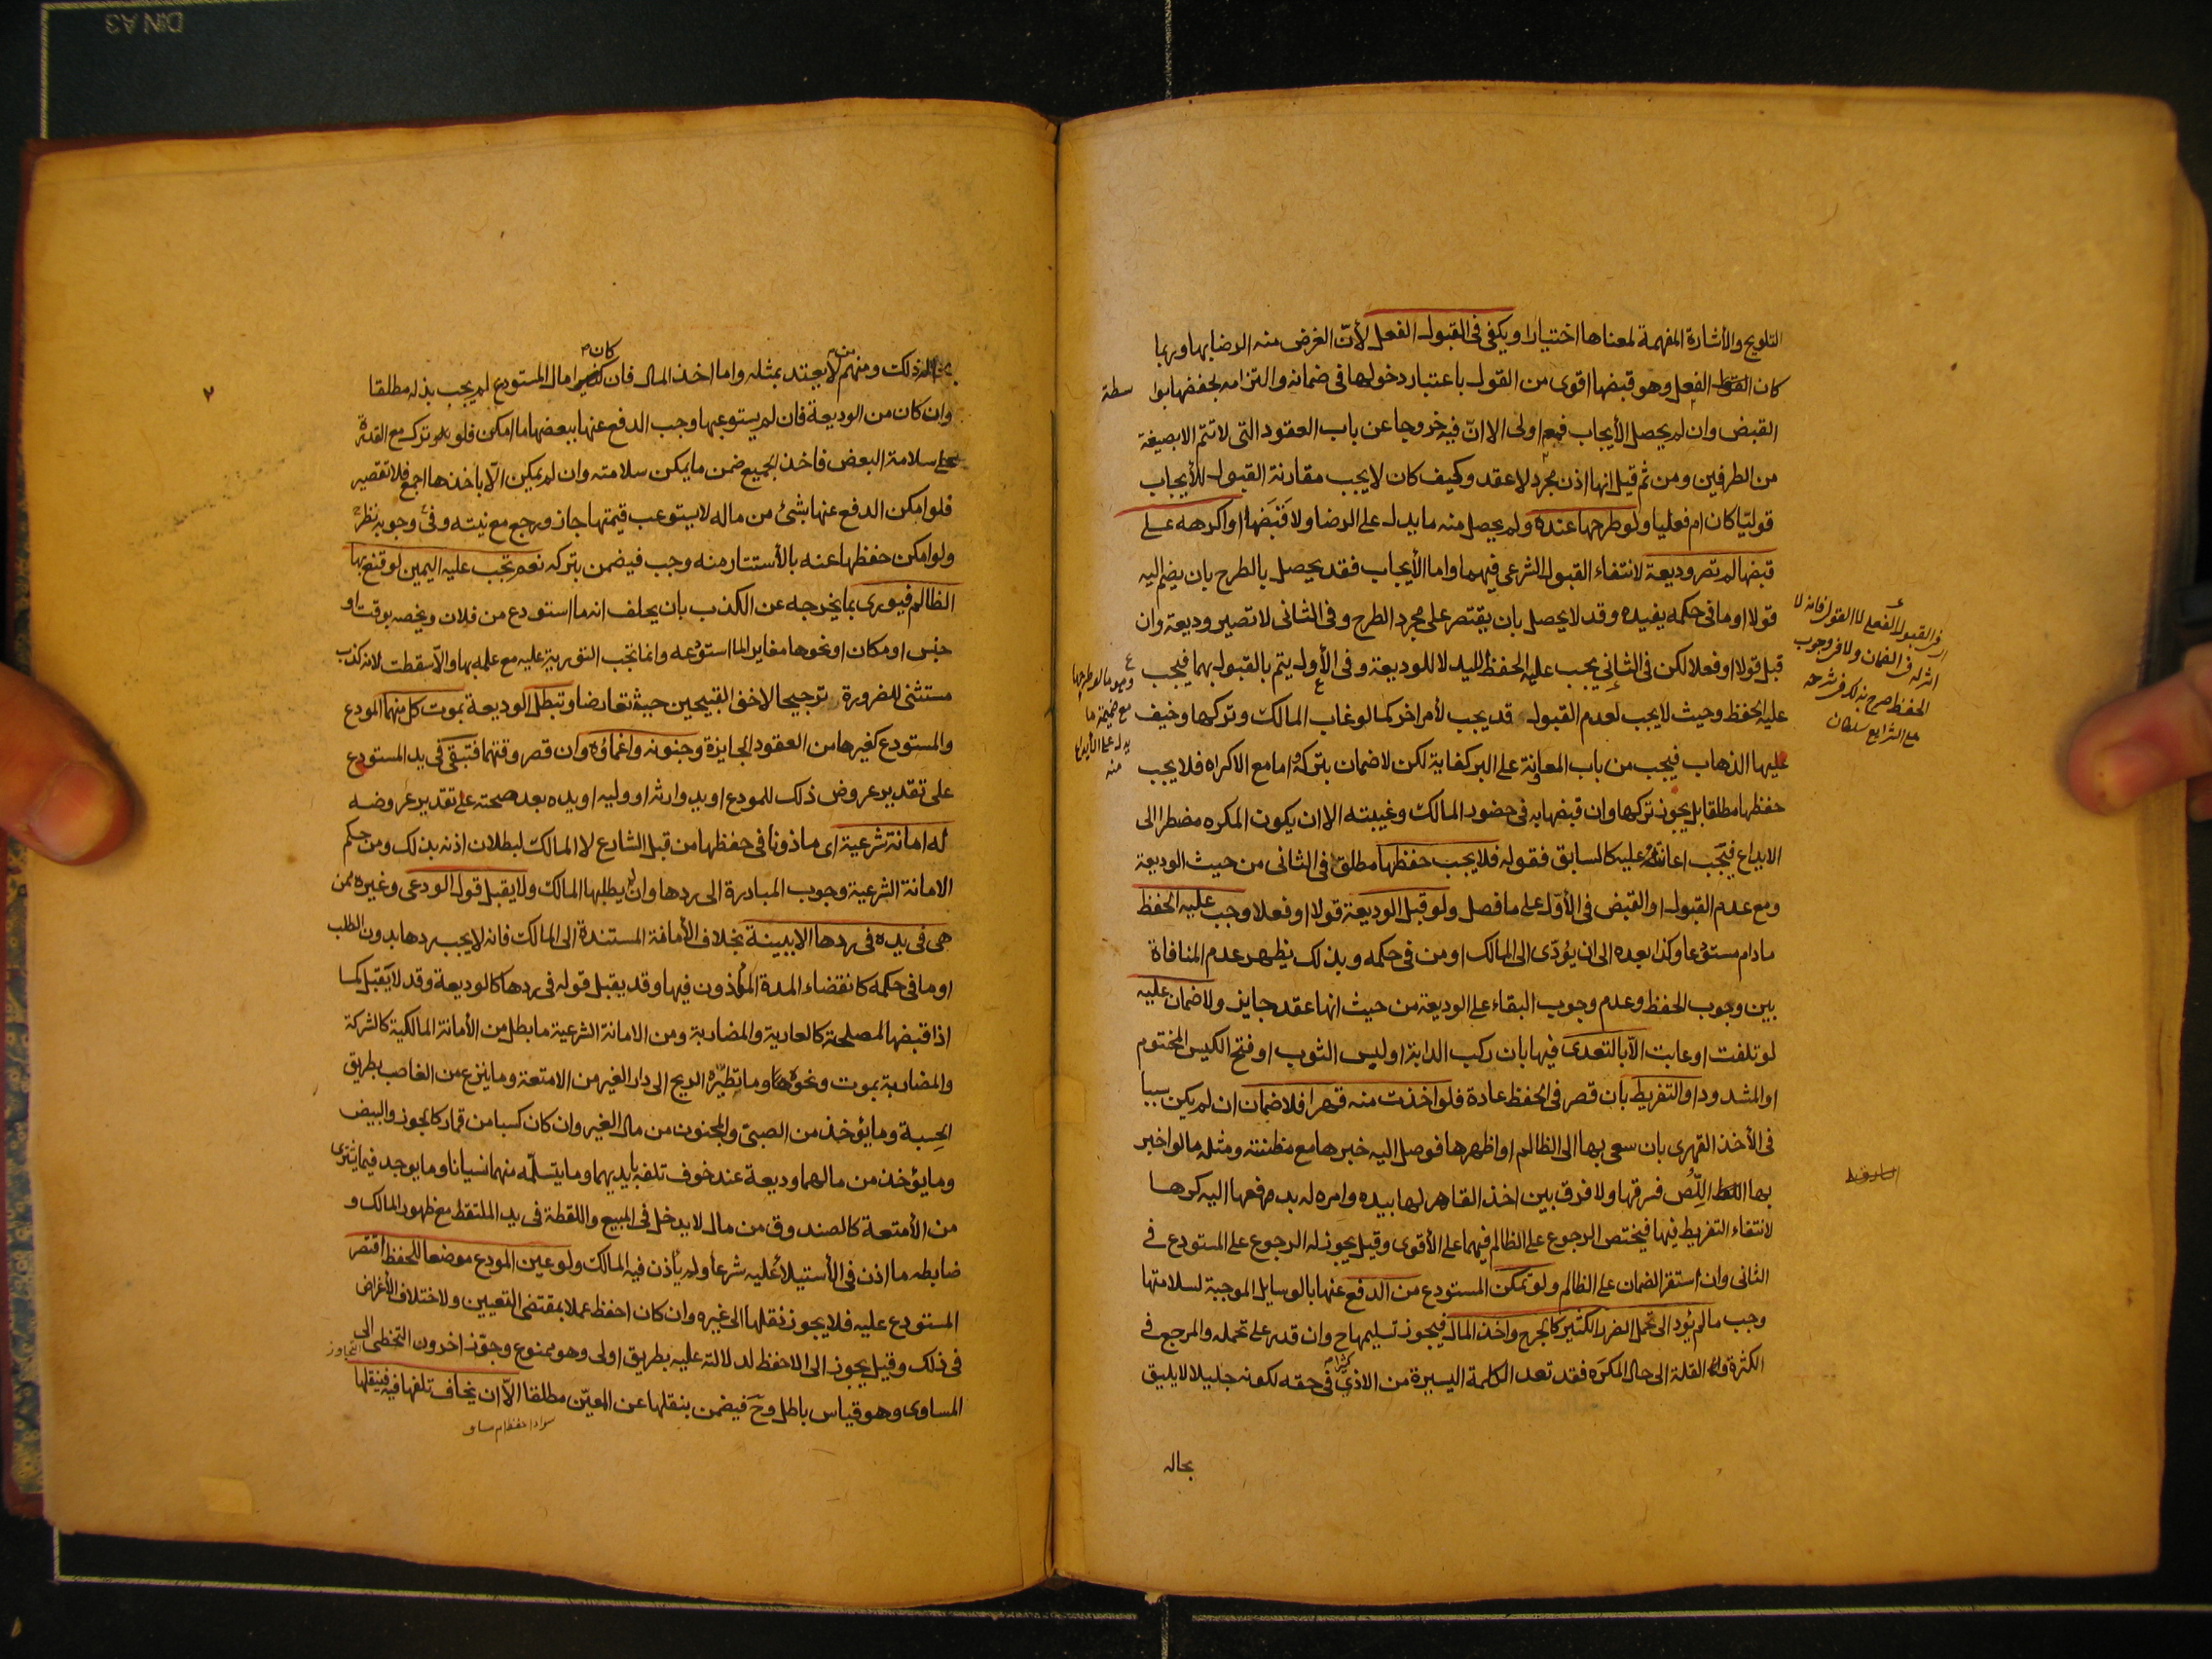 التلويح والأشارة المفهمة لمعناها اختيارا ويكفي في القبول الفعل لأنّ الغرض منه الرضا بها وربما
كان الفعل وهو قبضها اقوى من القول باعتبار دخولها في ضمانه والتزامه بحفضها بوا سطة
القبض وان لم يحصل الأيجاب فهو اولى الا انّ فيه خروجا عن باب العقود التي لا تتم الا بصيغة
من الطرفين ومن ثم قيل انها اذن مجرد لا عقد وكيف كان لا يجب مقارنة القبول للأيجاب
قوليّا كان ام فعليا ولو طرحها عنده ولم يحصل منه ما يدل على الرضا ولا قَبَضَها او اكرهه على
قبضها لم تصر وديعة لانتفاء القبول الشرعي فيهما واما الأيجاب فقد يحصل بالطرح بان يضم اليه
قولا او ما في حكمه يفيده وقد لا يحصل بان يقتصر على مجرد الطرح وفي الثاني لا تصير وديعة وان
قبل قولا او فعلا لكن في الثاني يجب عليه الحفظ لليد لا للوديعة وفي الأول يتم بالقبول بهما فيجب
عليه الحفظ وحيث لا يجب لعدم القبول قد يجب لأمر اخر كما لو غاب المالك وتركها وخيف
عليها الذهاب فيجب من باب المعاونة على البر كفاية لكن لا ضمان بتركه واما مع الاكراه فلا يجب
حفظها مطلقا بل يجوز تركها وان قبضها به في حضور المالك وغيبته الا ان يكون المكره مضطرا الى
الايداع فيجب اعانته عليه كالسابق فقوله فلا يجب حفظها مطلق في الثاني من حيث الوديعة
ومع عدم القبول او القبض في الأوّل على ما فصل ولو قبل الوديعة قولا او فعلا وجب عليه الحفظ
ما دام مستودعا وكذا بعده الى ان يُؤدّى الى المالك او من في حكمه وبذلك يظهر عدم المنافاة
بين وجوب الحفظ وعدم وجوب البقاء على الوديعة من حيث انها عقد جايز ولا ضمان عليه
لو تلفت او عابت الّا بالتعدى فيها بان ركب الدابة او لبس الثوب او فتح الكيس المختوم
او المشدود او التفريط بان قصر في الحفظ عادة فلو اخذت منه قهرا فلا ضمان ان لم يكن سببا
في الأخذ القهري بان سعى بها الى الظالم او اظهرها فوصل اليه خبرها مع مظنته ومثله ما لو اخبر
بها اللِّصُ فسرقها ولا فرق بين اخذ القاهر لها بيده وامره له بدفعها اليه كرها
لانتفاء التفريط فيها فيختص الرجوع على الظالم فيهما على الأقوى وقيل يجوز له الرجوع على المستودع في
الثاني وان استقر الضمان على الظالم ولو تمكن المستودع من الدفع عنها بالوسايل الموجبة لسلامتها
وجب ما لم يؤد الى تحمل الضرر الكثير كالجرح واخذ المال فيجوز تسليمها ح وان قدر على تحمله والمرجع في
الكثرة والقلة الى حال المكرَه فقد تعد الكلمة اليسيرة من الاذى كثيرا في حقه لكونه جليلا لا يليق
بحاله
وهو ما لو طرحها
مع ضميمة ما
يدل على الأيداع
منه
الحفظ صرح بذلك في شرحه
على الشرايع سلطان
٢
ذلك ومنهم من لا يعتد بمثله واما اخذ المال فان كان مال المستودع لم يجب بذله مطلقا
وان كان من الوديعة فان لم يستوعبها وجب الدفع عنها ببعضها ما امكن فلو ترك مع القدرة
على سلامة البعض فاخذ الجميع ضمن ما يمكن سلامته وان لم يمكن الّا باخذها اجمع فلا تقصير
فلو امكن الدفع عنها بشئ من ماله لا يستوعب قيمتها جاز ورجع مع نيته وفي وجوبه نظر
ولو امكن حفظها عنه بالأستتار منه وجب فيضمن بتركه نعم تجب عليه اليمين لو قنع بها
الظالم فيورى بما يخرجه عن الكذب بان يحلف انه ما استودع من فلان ويخصه بوقت او
جنس او مكان او نحوها مغاير لما استودعه وانما تجب التورية عليه مع علمه بها والّا سقطت لانه كذب
مستثنى للضرورة ترجيحا لاخف القبيحين حيث تعارضا وتبطل الوديعة بموت كل منهما المودع
والمستودع كغيرها من العقود الجايزة وجنونه واغمائه وان قصر وقتهما فتبقى في يد المستودع
على تقدير عروض ذلك للمودع او يد وارثه او وليه او يده بعد صحته على تقدير عروضه
له امانة شرعية اي ماذونا في حفظها من قبل الشارع لا المالك لبطلان اذنه بذلك ومن حكم
الامانة الشرعية وجوب المبادرة الى ردها وان لم يطلبها المالك ولا يقبل قول الودعى وغيره ممن
هي في يده في ردها الا ببينة بخلاف الأمانة المستندة الى المالك فانه لا يجب ردها بدون الطلب
او ما في حكمه كانقضاء المدة المأذون فيها وقد يقبل قوله في ردها كالوديعة وقد لا يقبل كما
اذا قبضها لمصلحته كالعارية والمضاربة ومن الامانة الشرعية ما بطل من الأمانة المالكية كالشركة
والمضاربة بموت ونحوه وما تطيّره الريح الى دار الغير من الامتعة وما ينزع من الغاصب بطريق
الحِسبة وما يؤخذ من الصبيّ والمجنون من مال الغير وان كان كسبا من قمار كالجوز والبيض
وما يؤخذ من مالهما وديعة عند خوف تلفه بايديهما وما يتسلّمه منهما نسيانا وما يوجد فيما يشترى
من الأمتعة كالصندوق من مال لا يدخل في المبيع واللقطة في يد الملتقط مع ظهور المالك و
ضابطه ما اذن في الأستيلاء عليه شرعا ولم ياذن فيه المالك ولو عين المودع موضعا للحفظ اقتصر
المستودع عليه فلا يجوز نقلها الى غيره وان كان احفظ عملا بمقتضى التعيين ولاختلاف الأغراض
في ذلك وقيل يجوز الى الاحفظ لدلالته عليه بطريق اولى وهو ممنوع وجوّز اخرون التخطى الى
المساوى وهو قياس باطل وحَ فيضمن بنقلها عن المعيّن مطلقا الّا ان يخاف تلفها فيه فينقلها